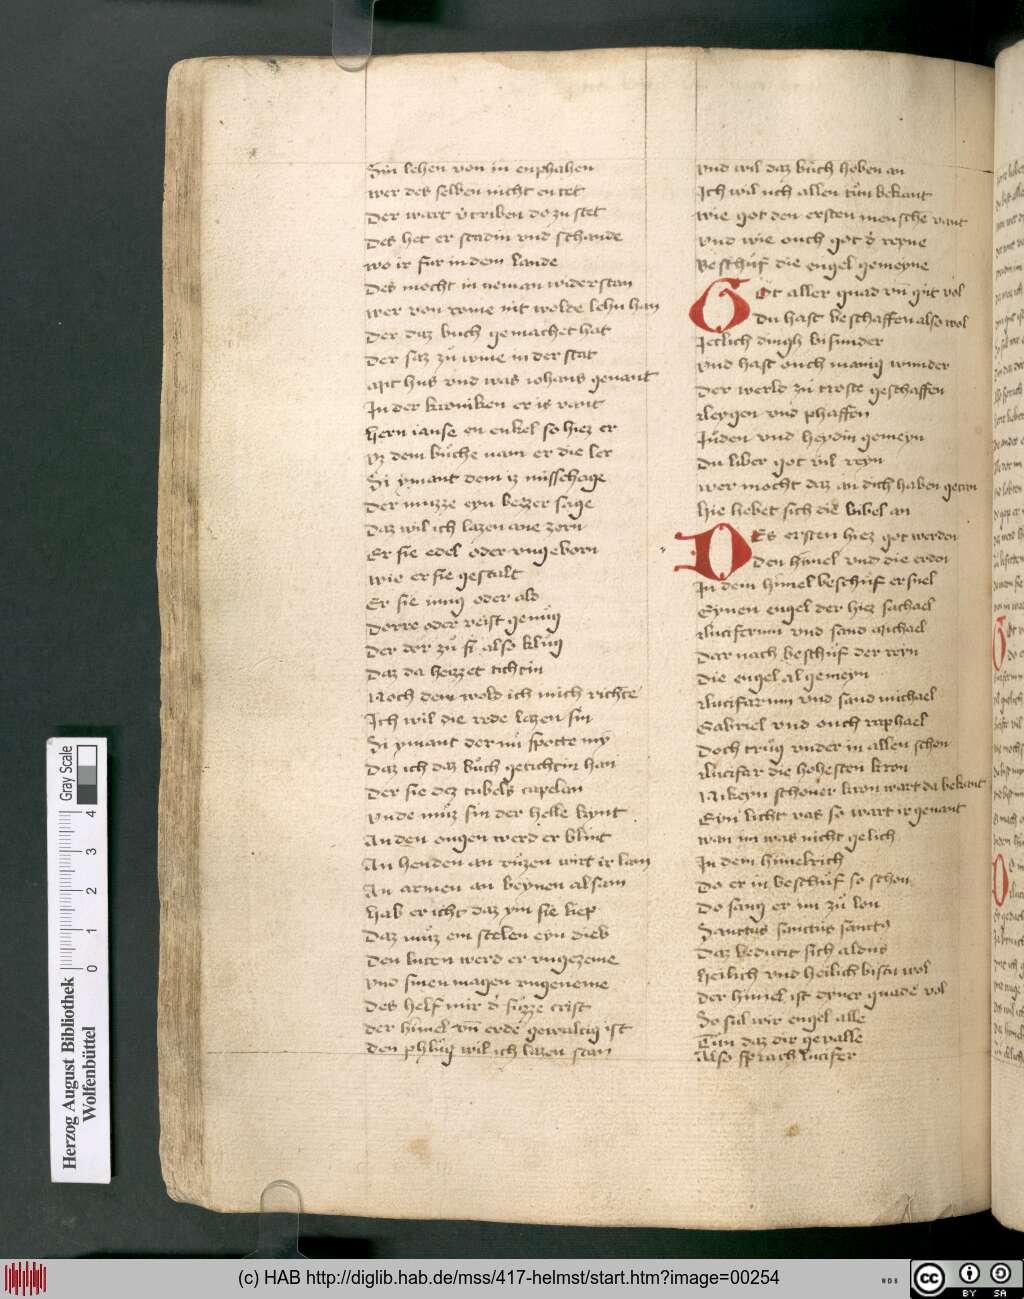 Sin lehen von in enphahen
wer des selben nicht entet
Der wart v̉triben do zu stet
Des het er scadin vnd schande
wo ir fur in dem lande
Des mocht in neman widerstan
wer von rome nit wolde lehn han
Der daz buch gemachet hat
Der saz zů wine in der stat
apt hus vnd was iohans genant
In der kroniken er is vant
hern ianse en enkel so hiez er
vz dem bůche nam er die ler
Si ymant dem iz misschage
Der muzze eyn bezzer sage
Daz wil ich lazen ane zorn
Er sie edel oder vngeborn
wie er sie gestalt
Er sie iung oder ald
Dorre oder veist genůg
Der dor zů si also klůg
Daz da heyzzet tichtin
Noch dem wold ich mich richte
Ich wil die rede lazen sin
Si ymant der nů spotte my
Daz ich daz bůch getichtin han
Der sie dez tubels capelan
vnde můz sin der helle kynt
An den ougen werd er blint
An henden an vůzen wirt ir lam
An armen an beynen alsam
Hab er icht daz ym sie liep
Daz můz em stelen eyn dieb
Den luten werd er vngezeme
vnd sinen magen vngeneme
Des helf mir d̉ sůzze crist
der himel vn̄ erde gewaltig ist
den phlůg wil ich lazen stan
vnd wil daz bůch heben an
Ich wil uch allen tůn bekant
wie got den ersten mensche vant
vnd wie ouch got d̉ reyne
Beschůf die engel gemeyne
Got aller gnad vn̄ gůt vol
Du hast beschaffen also wol
Jetlich dingh bisunder
vnd hast ouch manig wunder
der werld zů troste geschaffen
leygen vnd phaffen
Jůden vnd heydin gemeyn
Du liber got vil reyn
wer mocht daz an dich haben getan
hie hebet sich die bibel an
Des ersten hiez got werden
Den himel vnd die erden
In dem himel beschůf er snel
Eynen engel der hiez sathael
luciferum vnd sand michael
Dar nach beschůf der reyn
die engel al gemeyn
lucifarum vnd sand michael
Gabriel vnd ouch raphael
Doch trůg vnder in allen schon
lucifar die hohesten kron
Nikeyn schoner kron wart da bekant
Eyn licht vas so wart ir genant
wan im was nicht gelich
In dem himelrich
Do er in beschůf so schon
Do sang er im zů lon
Sanctus sanctus sanctꝰ
Daz bedutit sich aldus
heilich vnd heilich bistu wol
Der himel ist dyner gnade vol
So sul wir engel alle
Tůn daz dir gevalle
Also sprach lucifer
Gray Scale
0 1 2 3 4
Herzog August Bibliothek
Wolfenbüttel
(c) HAB http://diglib.hab.de/mss/417-helmst/start.htm?image=00254
WDB
cc BY SA